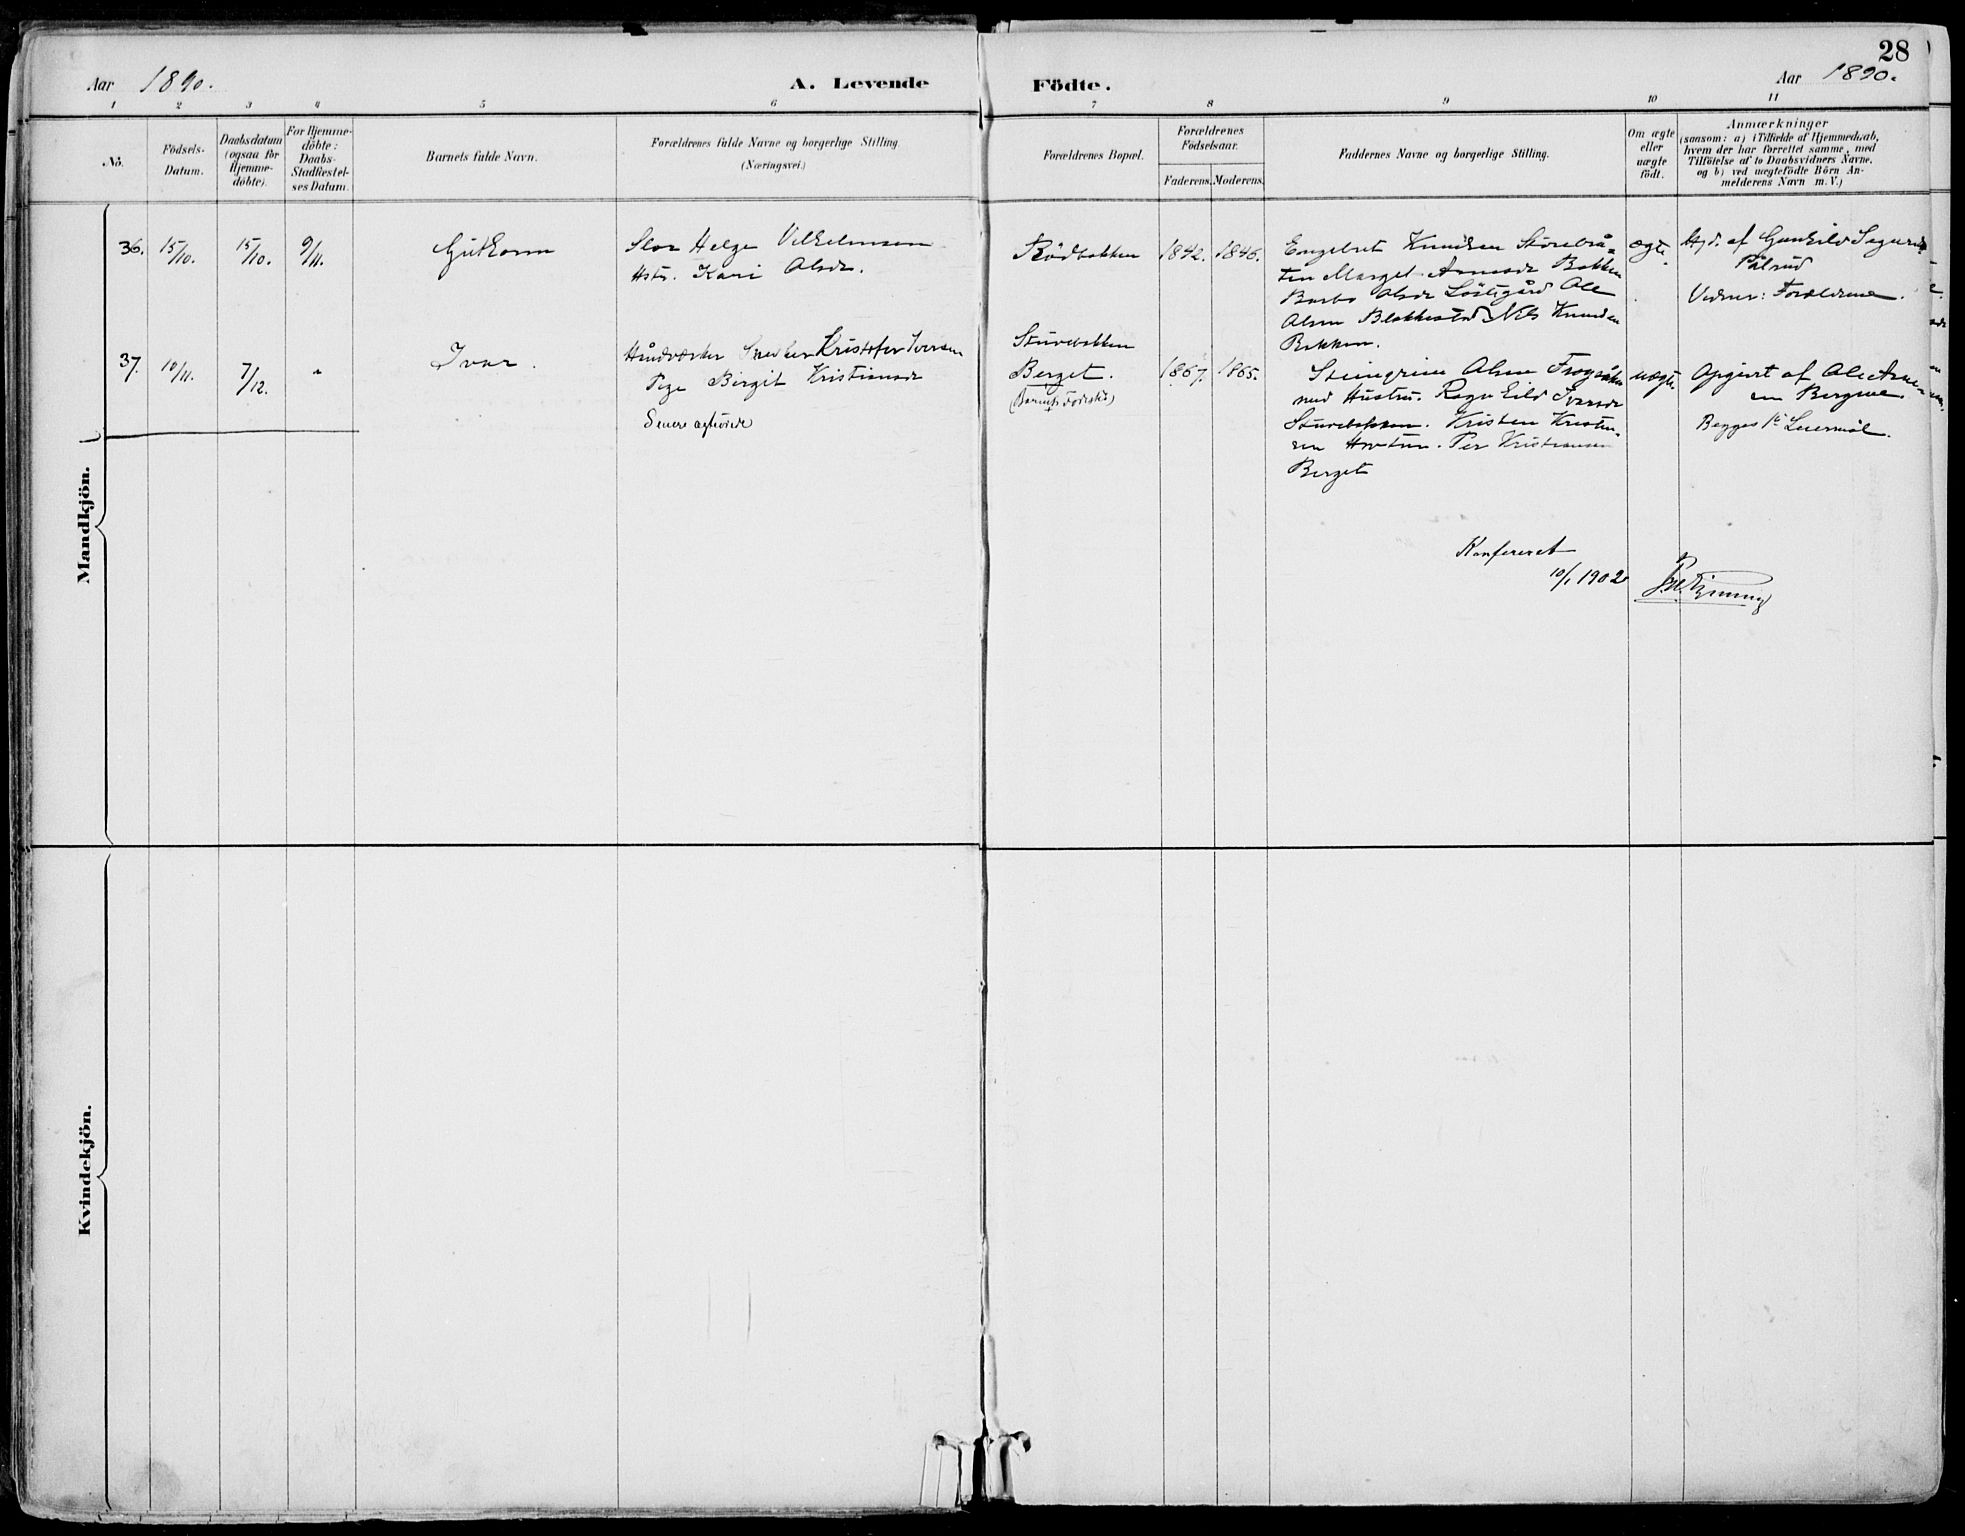 28
Aar 1890.
A. Levende Födte.
Aar 1890.
1 2 3 4 5 6 7 8 9 10 11
No.
Födsels-Datum.
Daabsdatum (ogsaa for Hjemme-döbte).
For Hjemme-döbte: Daabs-Stadfæstel-ses Datum.
Barnets fulde Navn.
Forældrenes fulde Navne og borgerlige Stilling
(Næringsvei.)
Forældrenes Bopæl.
Forældrenes Födselsaar.
Faderens. Moderens.
Faddernes Navne og borgerlige Stilling.
Om ægte eller uægte födt.
Anmærkninger
(saasom: a) i Tilfælde af Hjemmedaab,
hvem der har forrettet samme, med
Tilföielse af to Daabsvidners Navne,
og b) ved uægtefödte Börn An-
melderens Navn m. V.)
Mandkjön.
36. 15/10. 15/10. 9/11. Gutorm
Helge Vilhelmsen
Hstr. Kari Olsdr.
Rödbakken 1842. 1846.
Engebret Knudsen Storebrå-
ten Marget Arnesdr Bakken
Barbo Olsdr Ole
Olsen Blakkestad Nils Knudsen
Bakken.
ægte
Hjd. af Gunhild
Pålsrud
Vidner: Forældrene.
37. 10/11. 7/12. " Ivar.
Håndværker Snedker Kristofer Iversen
Pige Birgit Kristiansdr
Senere ægteviede
Sturebakken
Berget.
1867. 1865.
Steingrim Olsen
med Hustru. Ragnhild Ivarsdr
Sturebakken. Kristen Kristen-
sen Per Kristiansen
Berget
uægte
Opgivet af Ole Arne-
sen
Begges 1ste Leiermål.
Konfereret
10/1 1902
Kvindekjön.